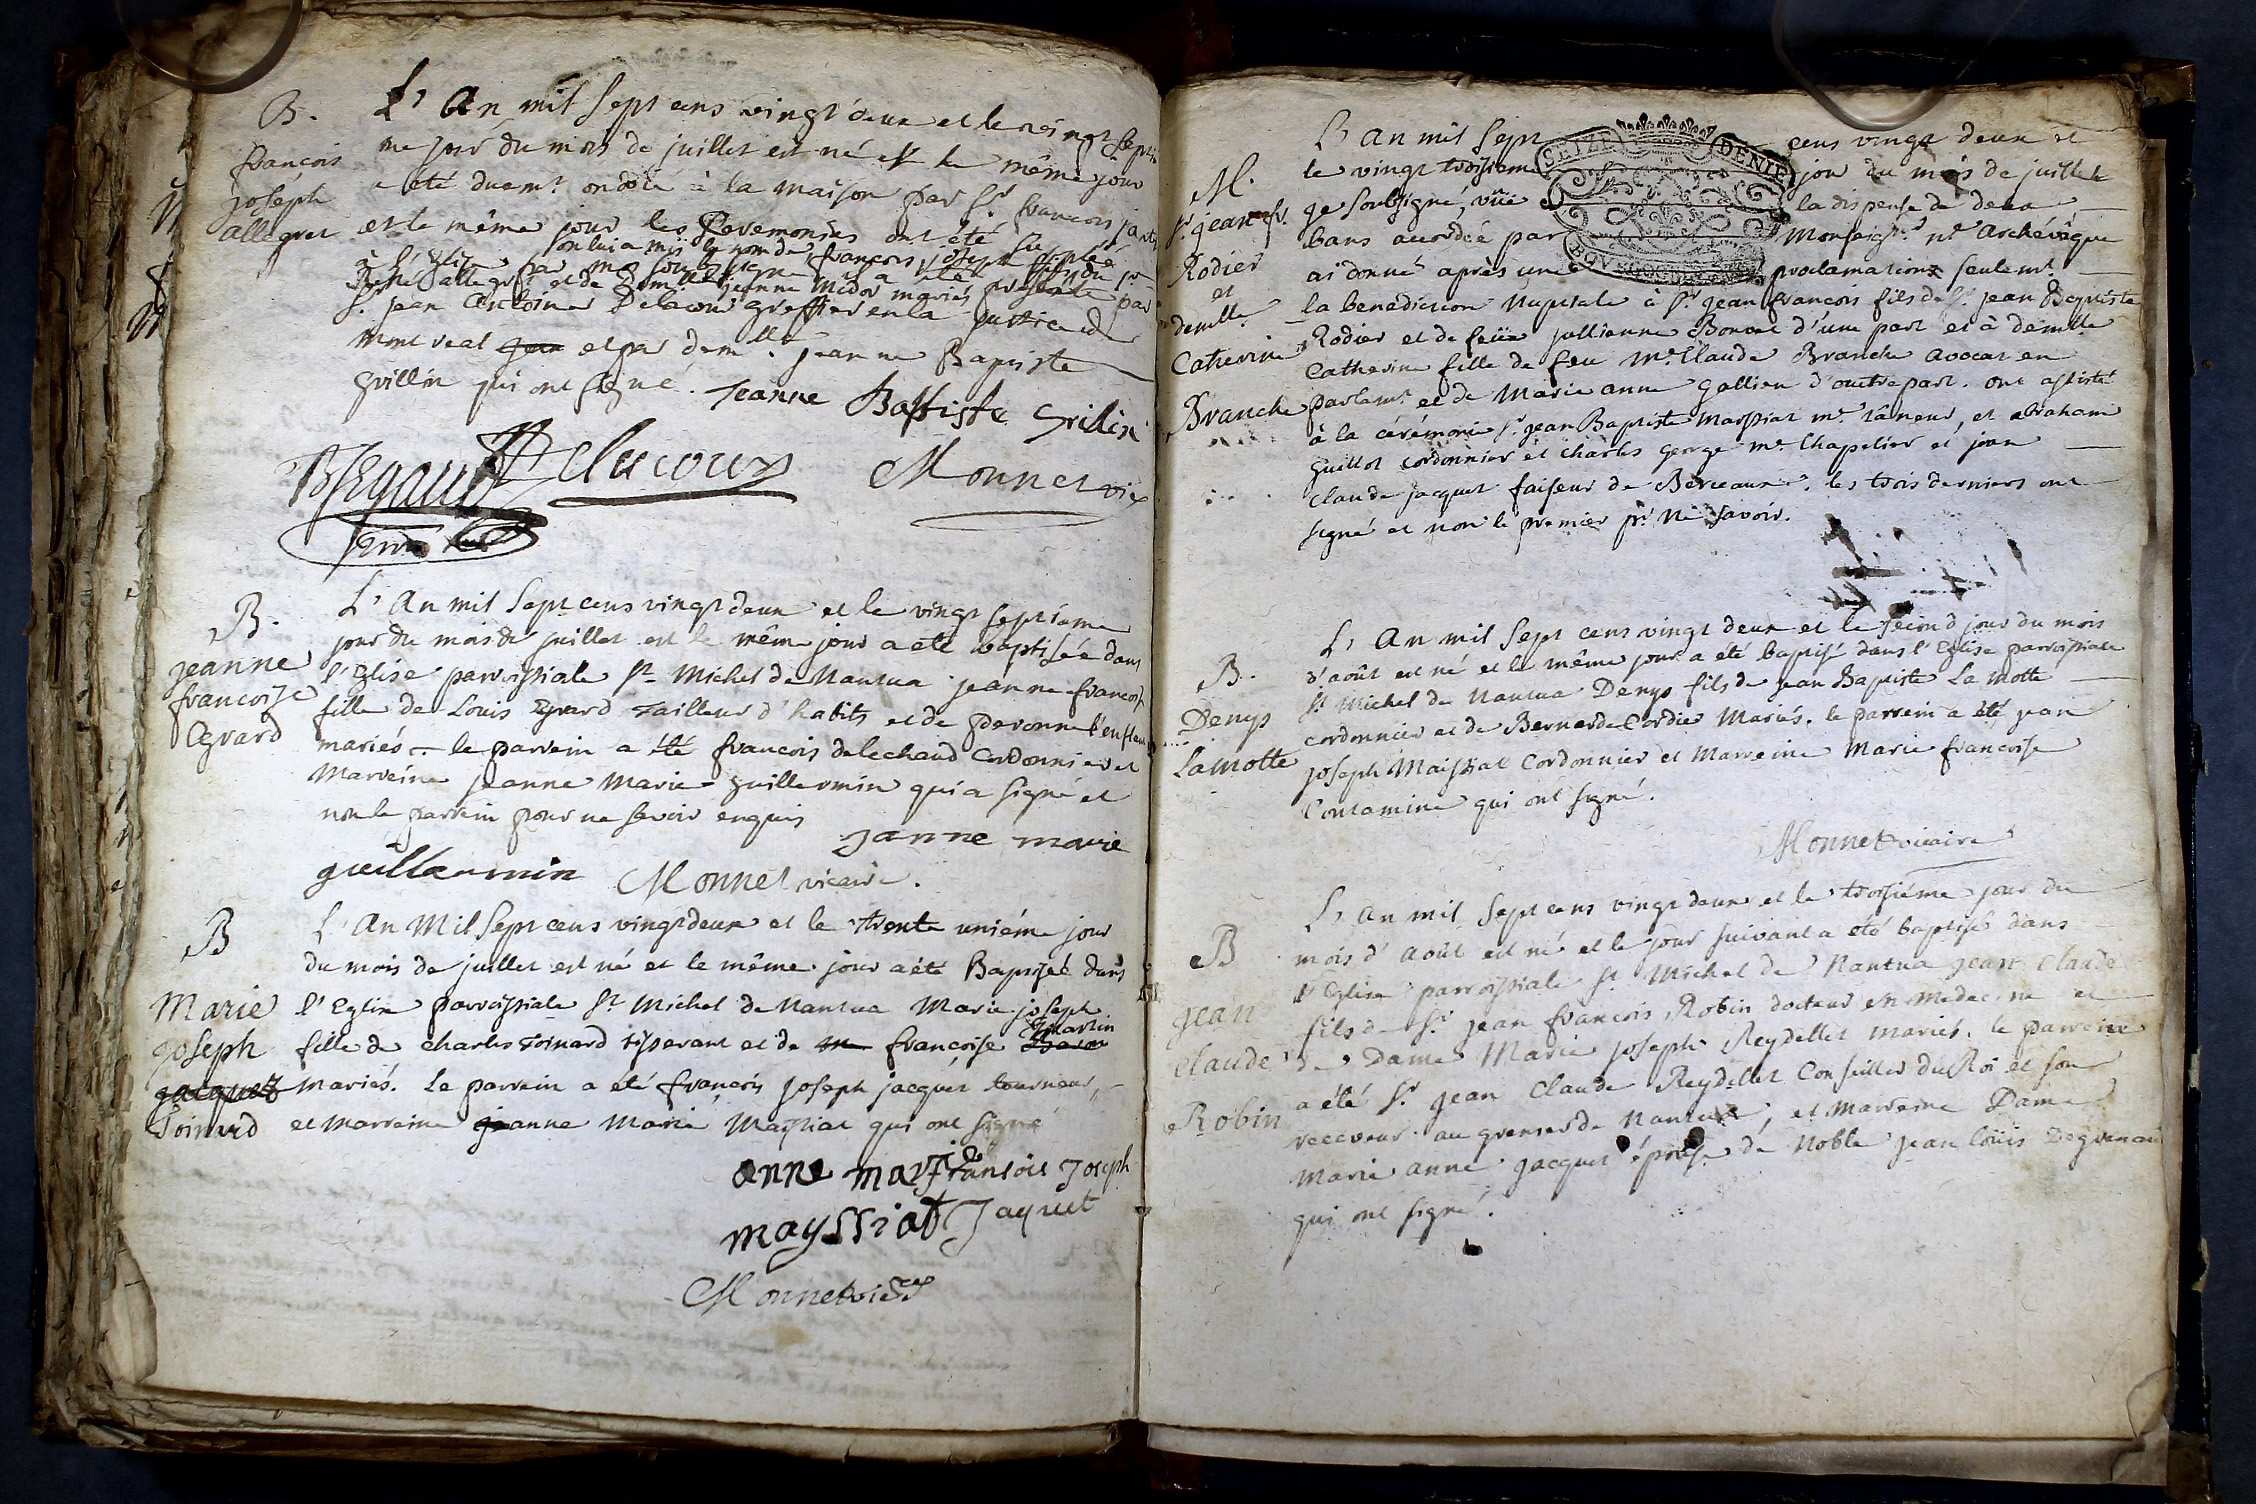 B.
françois
joséph
allegret
L'An mil sept cens vingt deux et le vingt septie
me jour du mois de juillet est né et le même jour
a été duemt. ondoié à la maison par Sr françois
et le même jour les Ceremonies ont été suppléé
à l'Eglise par
on lui a mis le nom de françois joseph
allegret et de jeanne midor mariés presente par
S. jean Antoine Delacour greffier en la justice d
mont real et par demlle. jeanne Baptiste
grillin qui ont signé. Jeanne Baptiste Grilin
Delucour Monnet vic
B.
jeanne
francoise
Egvard
L'An mil sept cens vingt deux et le vingt septiéme
jour du mois de juillet est le même jour a eté baptisée dans
l'Eglise parroissiale St Michel de Nantua jeanne francoise
fille de Louis Egvard Tailleur d'habits et de pevonne
mariés. le parrein a été francois delechaud Cordonnier et
Marreine jeanne Marie guillermin qui a signé et
non le parrein pour ne savoir enquis
janne marie
guillermin Monnet vicaire.
B
Marie
Joseph
jacquet
Toinard
L'An Mil Sept cens vingt deux et le trente uniéme jour
du mois de juillet est né et le même jour a été Baptisée dans
l'Eglise parroissiale St. Michel de Nantua Marie joseph
fille de charles Toinard tisserant et de francoise Martin
mariés. Le parrein a été francois joseph jacquet tourneur,
et marreine jeanne Marie Maissiat qui ont signé
anne marie fransois Joseph
mayssiat Jaquet
Monnet vicre
M.
Sr. jean fr.
Rodier
et
demlle.
Catherine
Branche
SEIZE DENIE
BOVRGOGNE
L'An mil Sept cens vingt deux et
le vingt troisieme jour du mois de juillet
je soubsigné, vüe la dispense de deux
bans accordée par Monseigr. nr. Archévêque
aï donné après une proclamation seulemt.
la benediction Nuptiale à Sr. jean francois fils de Sr. jean Baptiste
Rodier et de feüe jullienne Bonnet d'une part et à demlle
Catherine fille de feu Me. Claude Branche avocat en
parlemt. et de Marie anne Gallien d'autre part. ont assisté
à la cérémonie Sr. jean Baptiste Maissiat me. tâneur, et abraham
Guillot cordonnier et charles George me. Chapelier et jean
Claude jacquet faiseur de Berceaux, les trois derniers ont
signé et non le premier pr. ne savoir.
B.
Denys
Lamotte
L'An mil Sept cens vingt deux et le second jour du mois
d'août est né et le même jour a été baptisé dans l'Eglise parroissiale
St. Michel de Nantua Denys fils de jean Baptiste La motte
cordonnier et de Bernarde Cordier Mariés. le parrein a été jean
joseph Maissiat Cordonnier et Marreine Marie francoise
Contamine qui ont signé.
Monnet vicaire
B
jean
Claude
Robin
L'An mil Sept cens vingt deux et le troisiéme jour du
mois d'Août est né et le jour suivant a été baptisé dans
l'Eglise parroissiale St. Michel de Nantua jean Claude
fils de Sr. jean francois Robin docteur en Medecine et
de Dame Marie joseph Reydellet mariés. le parrein
a été Sr. jean Claude Reydellet Conseiller du Roi et son
receveur au grenier de Nantua, et Marreine Dame
Marie anne jacquet épouse de Noble jean Loüis Degrenaud
qui ont signé.